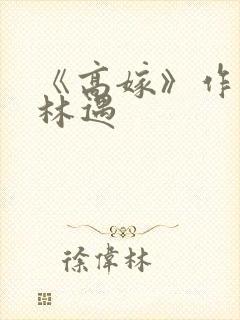 《高嫁》作
林遇
徐偉林